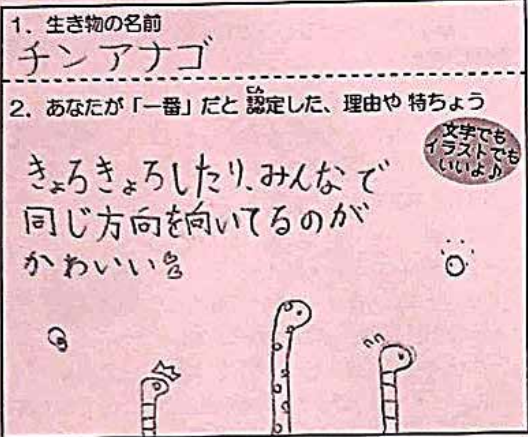 1. 生き物の名前
チンアナゴ
2. あなたが「一番」だと認定した、理由や特ちょう
文字でも
イラストでも
いいよ♪
きょろきょろしたり、みんなで
同じ方向を向いてるのが
かわいい